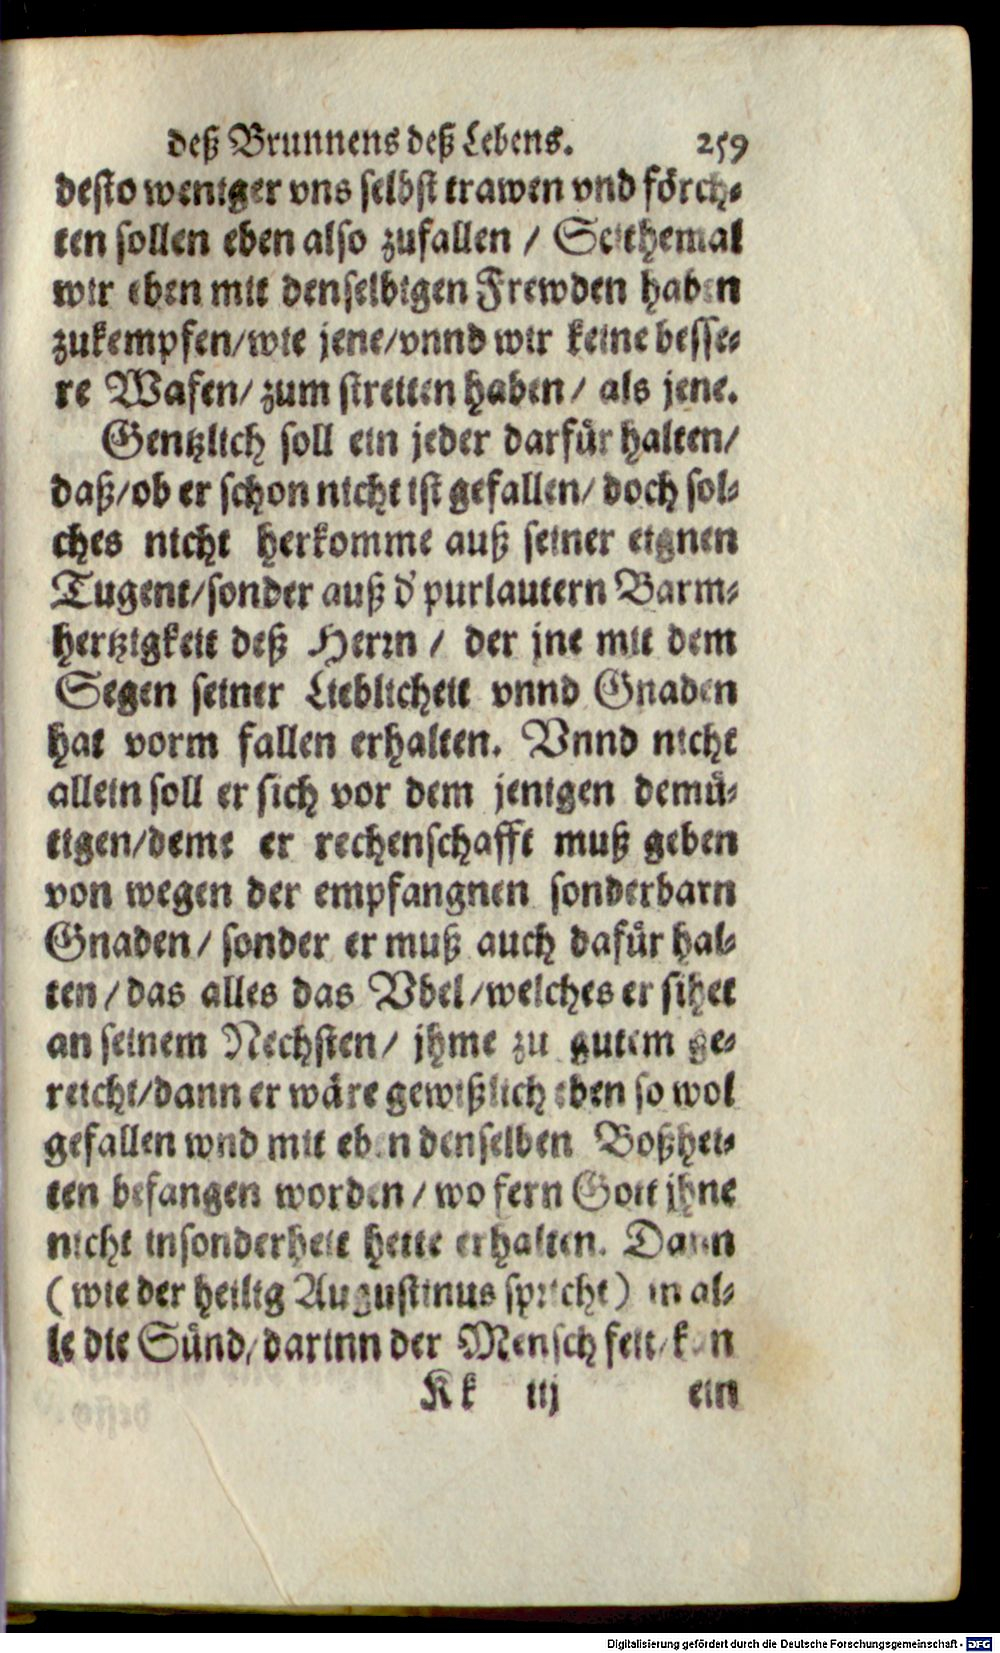 deß Brunnens deß Lebens. 259
desto weniger vns selbst trawen vnd förch-
ten sollen eben also zufallen / Seithemal
wir eben mit denselbigen Frewden haben
zukempfen/wie jene/vnnd wir keine besse-
re Wafen/ zum streiten haben/ als jene.
Gentzlich soll ein jeder darfür halten/
daß/ob er schon nicht ist gefallen/ doch sol-
ches nicht herkomme auß seiner eignen
Tugent/sonder auß d' purlautern Barm-
hertzigkeit deß Herrn / der jne mit dem
Segen seiner Lieblicheit vnnd Gnaden
hat vorm fallen erhalten. Vnnd nicht
allein soll er sich vor dem jenigen demü-
tigen/deme er rechenschafft muß geben
von wegen der empfangnen sonderbarn
Gnaden/ sonder er muß auch dafür hal-
ten /das alles das Vbel/welches er sihet
an seinem Nechsten/ jhme zu gutem ge-
reicht/dann er wäre gewißlich eben so wol
gefallen wnd mit eben denselben Boßhei-
ten befangen worden/ wo fern Gott jhne
nicht insonderheit hette erhalten. Dann
(wie der heilig Augustinus spricht) in al-
le die Sünd/darinn der Mensch felt/kan
Kk iij ein
Digitalisierung gefördert durch die Deutsche Forschungsgemeinschaft - DFG